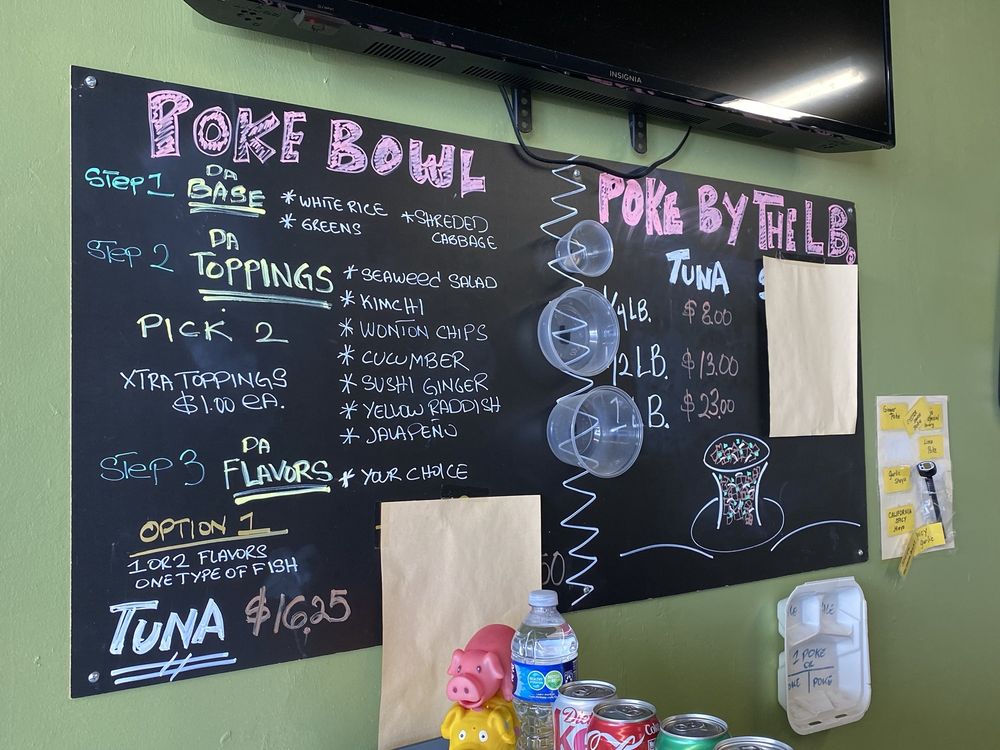 INSIGNIA
POKE BOWL
STEP 1 DA BASE
* WHITE RICE * SHREDED CABBAGE
* GREENS
STEP 2 DA TOPPINGS
PICK 2
XTRA TOPPINGS
$1.00 EA.
* SEAWEED SALAD
* KIMCHI
* WONTON CHIPS
* CUCUMBER
* SUSHI GINGER
* YELLOW RADDISH
* JALAPENO
STEP 3 DA FLAVORS * YOUR CHOICE
OPTION 1
1 OR 2 FLAVORS
ONE TYPE OF FISH
TUNA $16.25
50
POKE BY THE LB.
TUNA
1/4 LB. $8.00
1/2 LB. $13.00
1 LB. $23.00
Lime Poke
Garlic Shoyu
CALIFORNIA SPICY Mayo
1 POKE
OR
POKE
Diet
Coke